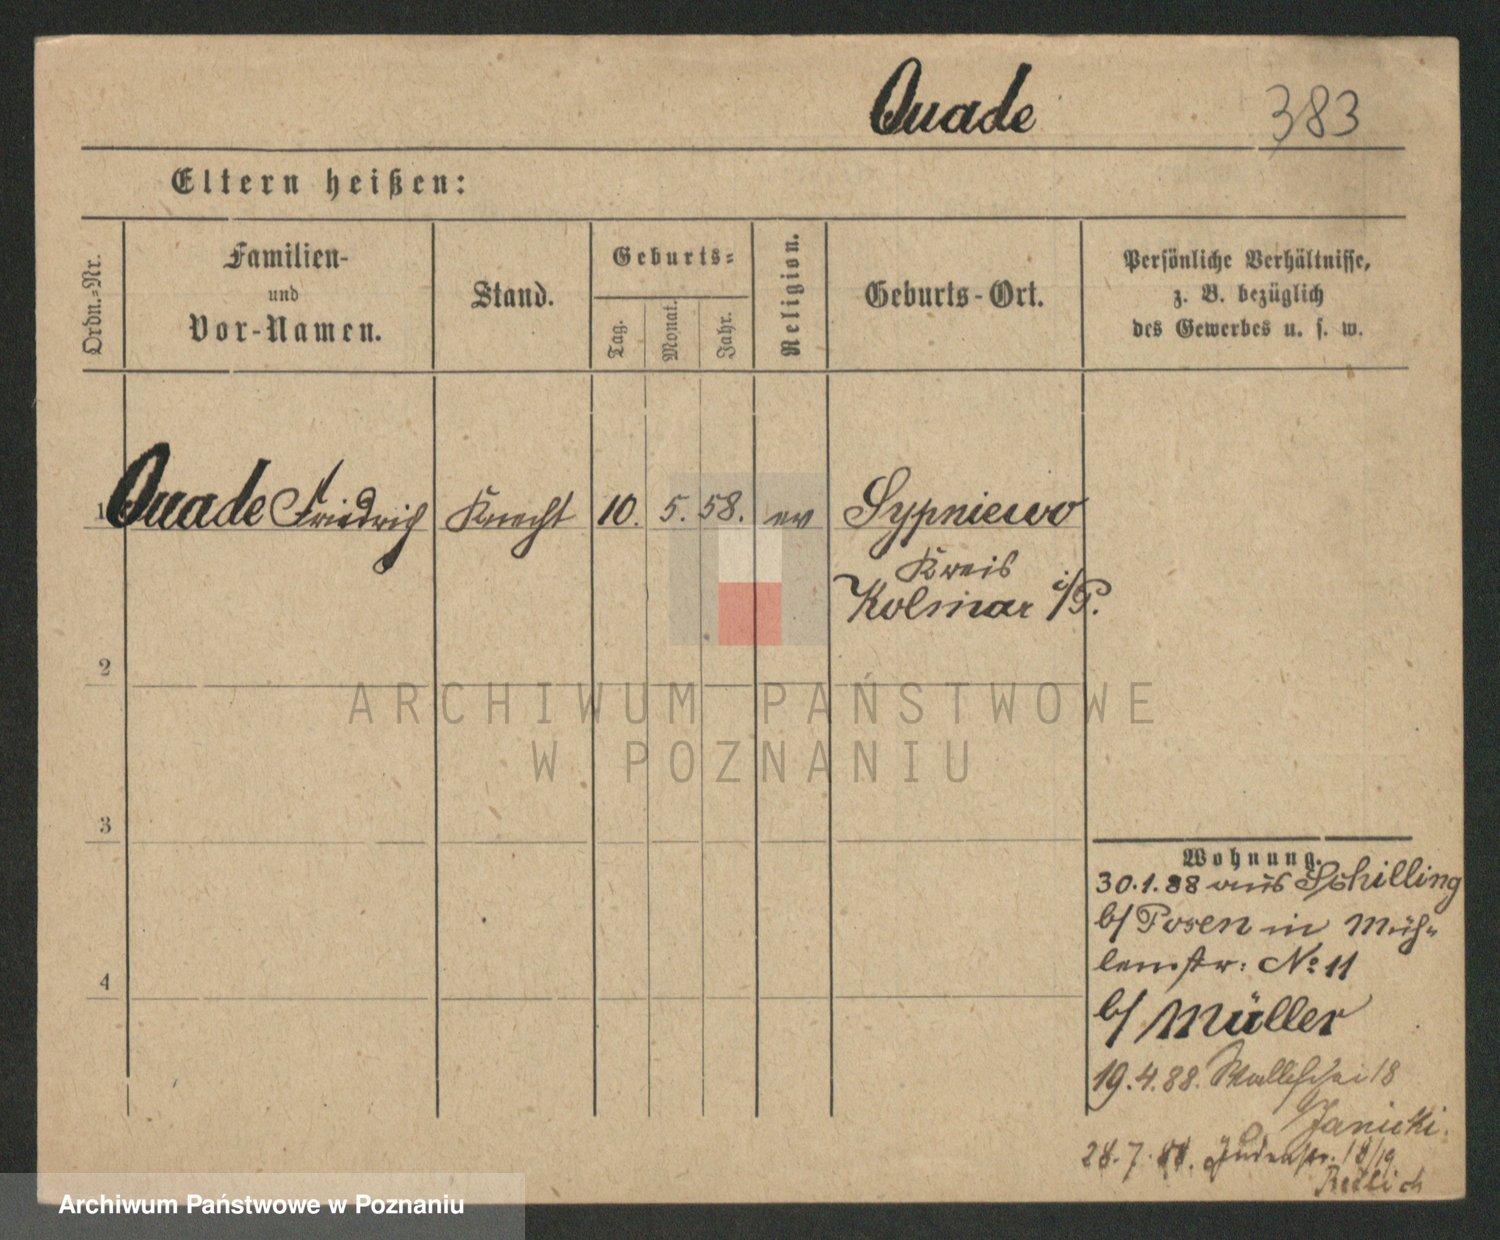 Quade 383
Eltern heißen:
Ordn.=Nr.
Familien-
und
Vor-Namen.
Stand.
Geburts=
Tag.
Monat.
Jahr.
Religion.
Geburts-Ort.
Persönliche Verhältnisse,
z. B. bezüglich
des Gewerbes u. s. w.
1 Quade Friedrich Knecht 10. 5. 58. ev Sypniewo
Kreis
Kolmar i/P.
2
3
4
Wohnung.
30.1.88 aus Schilling
b/ Posen in Müh=
lenstr: No 11
b/ Müller
19.4.88. Wallischei 18
Janicki.
28.7.88. Judenstr. 18/19
Redlich
ARCHIWUM PAŃSTWOWE
W POZNANIU
Archiwum Państwowe w Poznaniu